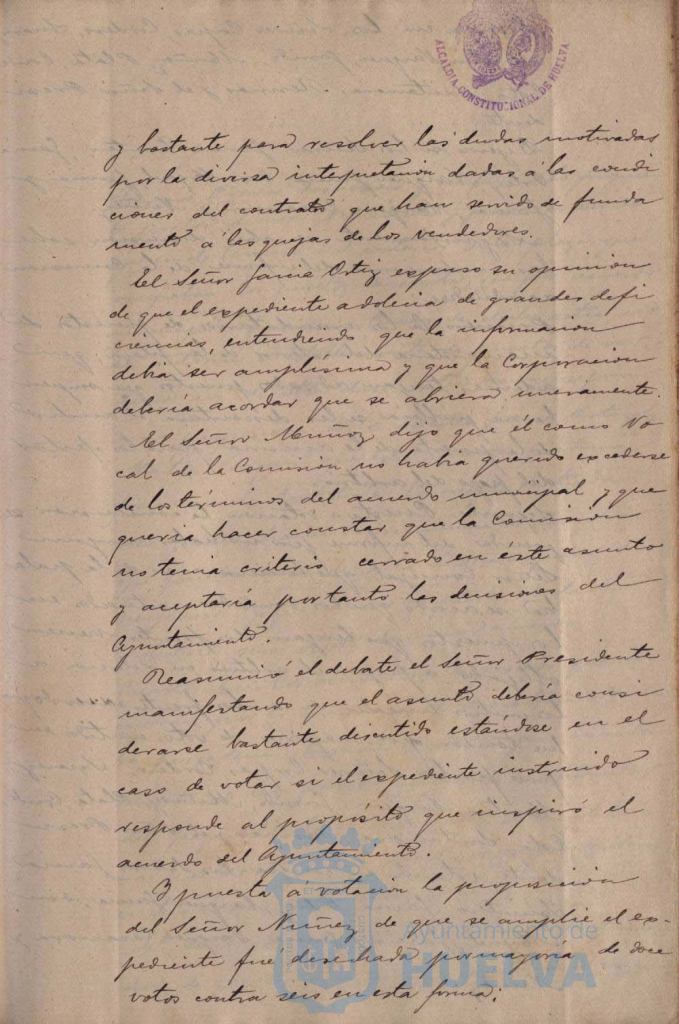 ALCALDIA CONSTITUCIONAL DE HUELVA
y bastante para resolver las dudas motivadas
por la diversa interpretacion dadas á las condi
ciones del contrato que han servido de funda
mento á las quejas de los vendedores.
El Señor Garcia Ortiz expuso su opinion
de que el expediente adolecia de grandes defi
ciencias, entendiendo que la informacion
debia ser amplísima y que la Corporacion
debería acordar que se abriera nuevamente.
El Señor Muñoz dijo que él como Vo
cal de la Comision no habia querido excederse
de los términos del acuerdo municipal y que
queria hacer constar que la Comision
no tenia criterio cerrado en éste asunto
y aceptaría por tanto las decisiones del
Ayuntamiento.
Reasumió el debate el Señor Presidente
manifestando que el asunto debería consi
derarse bastante discutido estándose en el
caso de votar si el expediente instruido
responde al propósito que inspiró el
acuerdo del Ayuntamiento.
Y puesta á votacion la proposicion
del Señor Nuñez de que se amplie el ex-
pediente fué desechada por mayoría de doce
votos contra seis en esta forma:
Ayuntamiento de
HUELVA